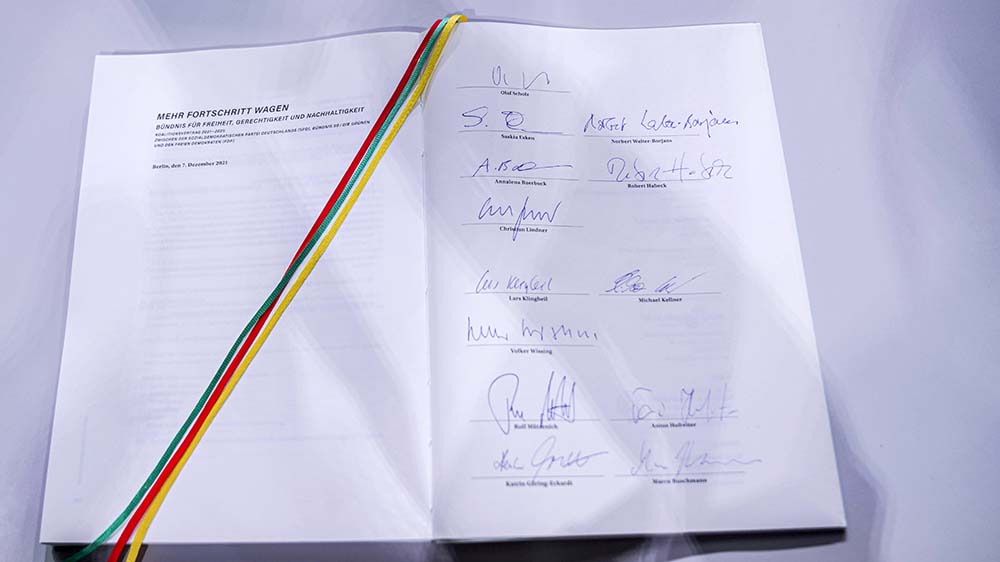 MEHR FORTSCHRITT WAGEN
BÜNDNIS FÜR FREIHEIT, GERECHTIGKEIT UND NACHHALTIGKEIT
KOALITIONSVERTRAG 2021–2025
ZWISCHEN DER SOZIALDEMOKRATISCHEN PARTEI DEUTSCHLANDS (SPD), BÜNDNIS 90 / DIE GRÜNEN
UND DEN FREIEN DEMOKRATEN (FDP)
Berlin, den 7. Dezember 2021
Olaf Scholz
Saskia Esken
Norbert Walter-Borjans
Annalena Baerbock
Robert Habeck
Christian Lindner
Lars Klingbeil
Michael Kellner
Volker Wissing
Rolf Mützenich
Anton Hofreiter
Katrin Göring-Eckardt
Marco Buschmann